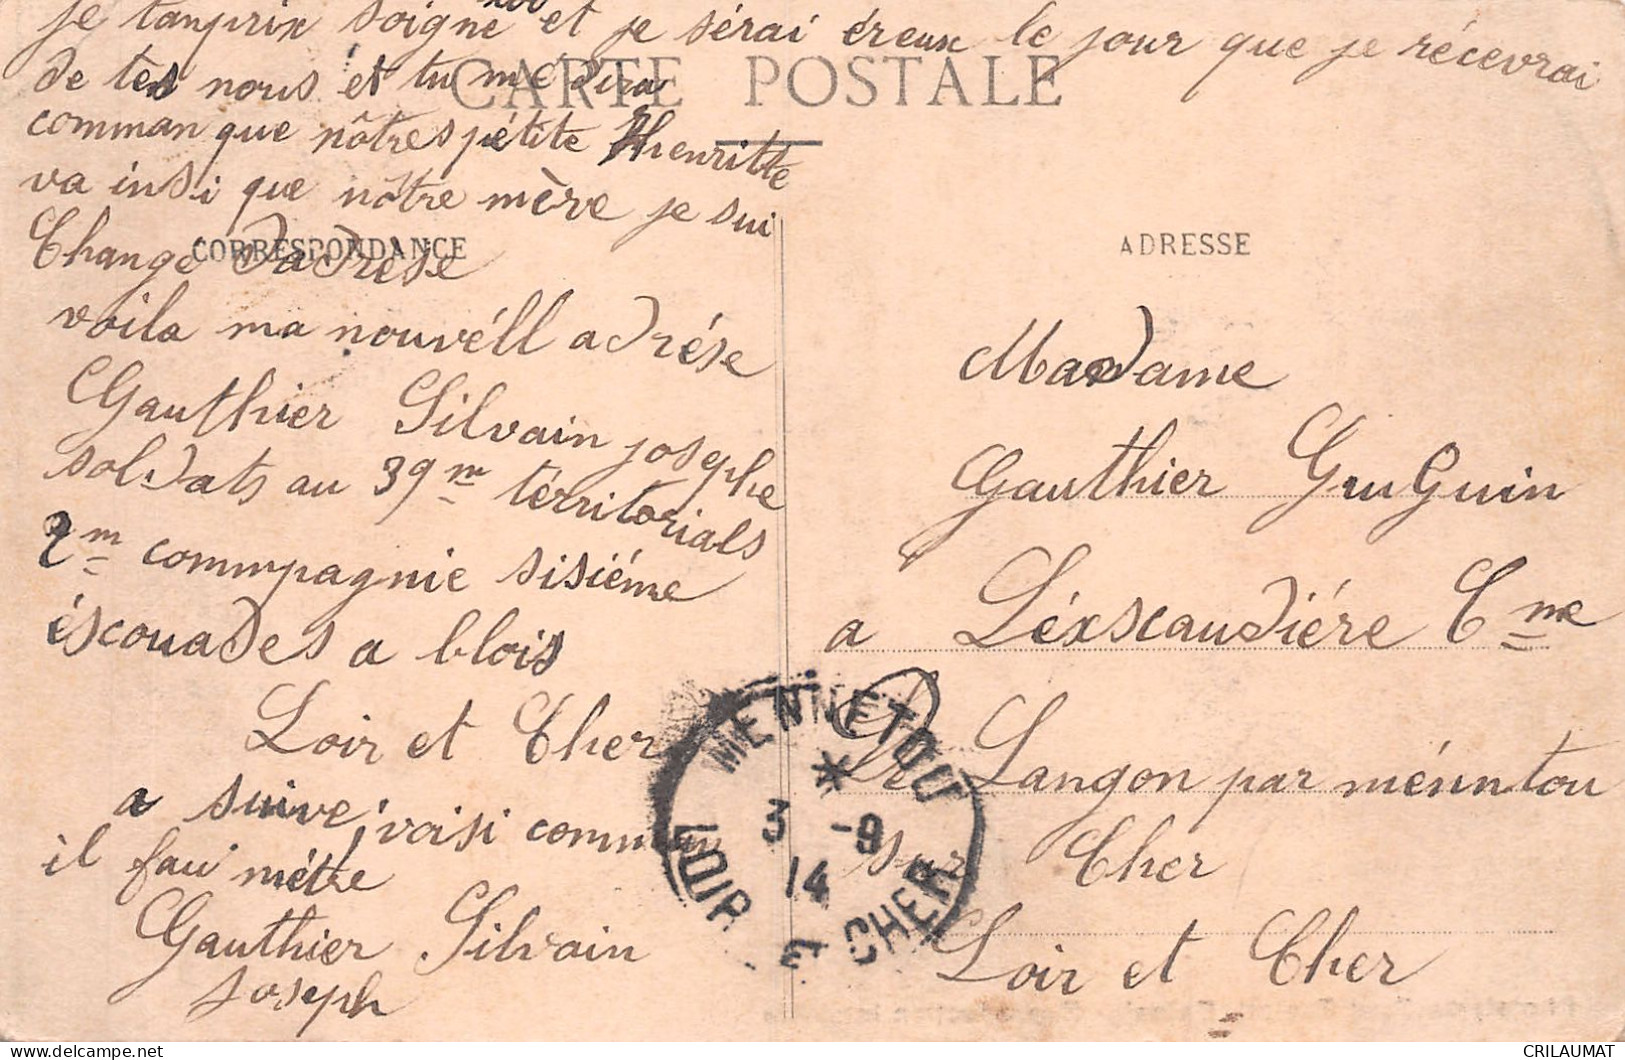 je tanprix soigne et je sérai éreux le jour que je récevrai
de tes nous et tu me dira
CARTE POSTALE
comman que nôtres pétite Hhenritte
va insi que nôtre mère je sui
Change d'adrése
CORRESPONDANCE
voila ma nouvéll adrése
Gauthier Silvain josephe
soldats au 39m térritorials
2m commpagnie sisiéme
éscouades a blois
Loir et Cher
a suive, voisi comman
il fau métre
Gauthier Silvain
Joseph
ADRESSE
Madame
Gauthier GuiGuin
a Léxscaudiére Cne
De Langon par ménntou
sur Cher
Loir et Cher
MENNETOU
* 3 -9
14
LOIR E CHER
CRILAUMAT